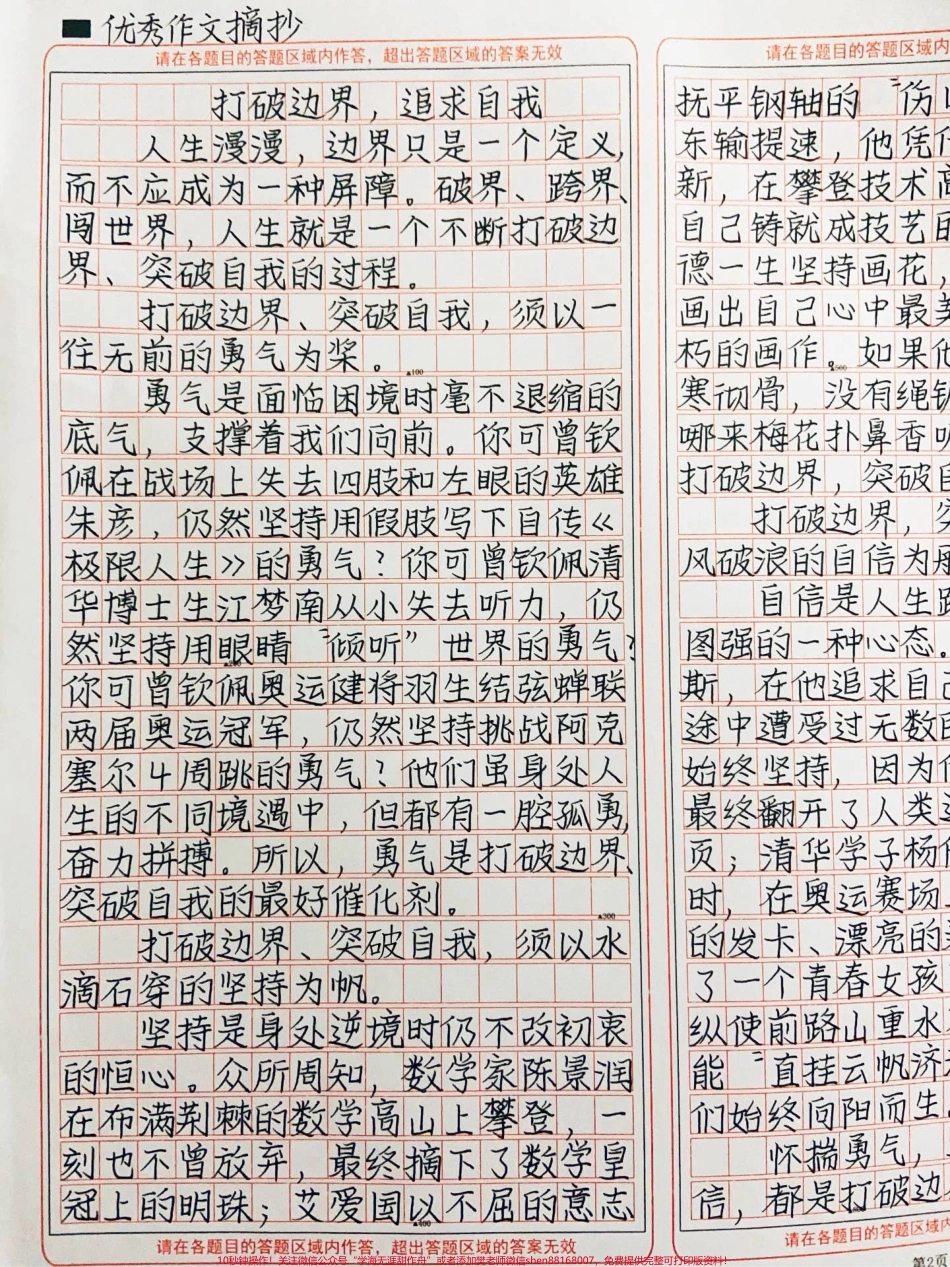 优秀作文摘抄
请在各题目的答题区域内作答，超出答题区域的答案无效
打破边界，追求自我
人生漫漫，边界只是一个定义，
而不应成为一种屏障。破界、跨界、
闯世界，人生就是一个不断打破边
界、突破自我的过程。
打破边界、突破自我，须以一
往无前的勇气为桨。
▲100
勇气是面临困境时毫不退缩的
底气，支撑着我们向前。你可曾钦
佩在战场上失去四肢和左眼的英雄
朱彦，仍然坚持用假肢写下自传《
极限人生》的勇气？你可曾钦佩清
华博士生江梦南从小失去听力，仍
然坚持用眼睛“倾听”世界的勇气？
▲200
你可曾钦佩奥运健将羽生结弦蝉联
两届奥运冠军，仍然坚持挑战阿克
塞尔4周跳的勇气？他们虽身处人
生的不同境遇中，但都有一腔孤勇，
奋力拼搏。所以，勇气是打破边界、
突破自我的最好催化剂。
▲300
打破边界、突破自我，须以水
滴石穿的坚持为帆。
坚持是身处逆境时仍不改初衷
的恒心。众所周知，数学家陈景润
在布满荆棘的数学高山上攀登，一
刻也不曾放弃，最终摘下了数学皇
冠上的明珠；艾爱国以不屈的意志
▲400
请在各题目的答题区域内作答，超出答题区域的答案无效
请在各题目的答题区域内
抚平钢轴的“伤
东输提速，他凭
新，在攀登技术高
自己铸就成技艺的
德一生坚持画花，
画出自己心中最美
朽的画作。如果
▲500
寒彻骨，没有绳锯
哪来梅花扑鼻香
打破边界，突破自
打破边界，突
风破浪的自信为
自信是人生路
图强的一种心态。
斯，在他追求自己
途中遭受过无数的
始终坚持，因为
最终翻开了人类
页；清华学子杨
时，在奥运赛场
的发卡、漂亮的美
了一个青春女孩
纵使前路山重水
能“直挂云帆济
们始终向阳而生
怀揣勇气，
信，都是打破边
请在各题目的答题区域内
第2页
10秒钟操作！关注微信公众号“学海无涯甜作舟”或者添加樊老师微信shen88168007，免费提供完整可打印版资料！